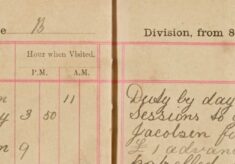 e B Division, from 8
Hour when Visited.
P.M. A.M.
11 Duty by day
y 3 30 Sessions
Jacolsen
£1 advan
n 9